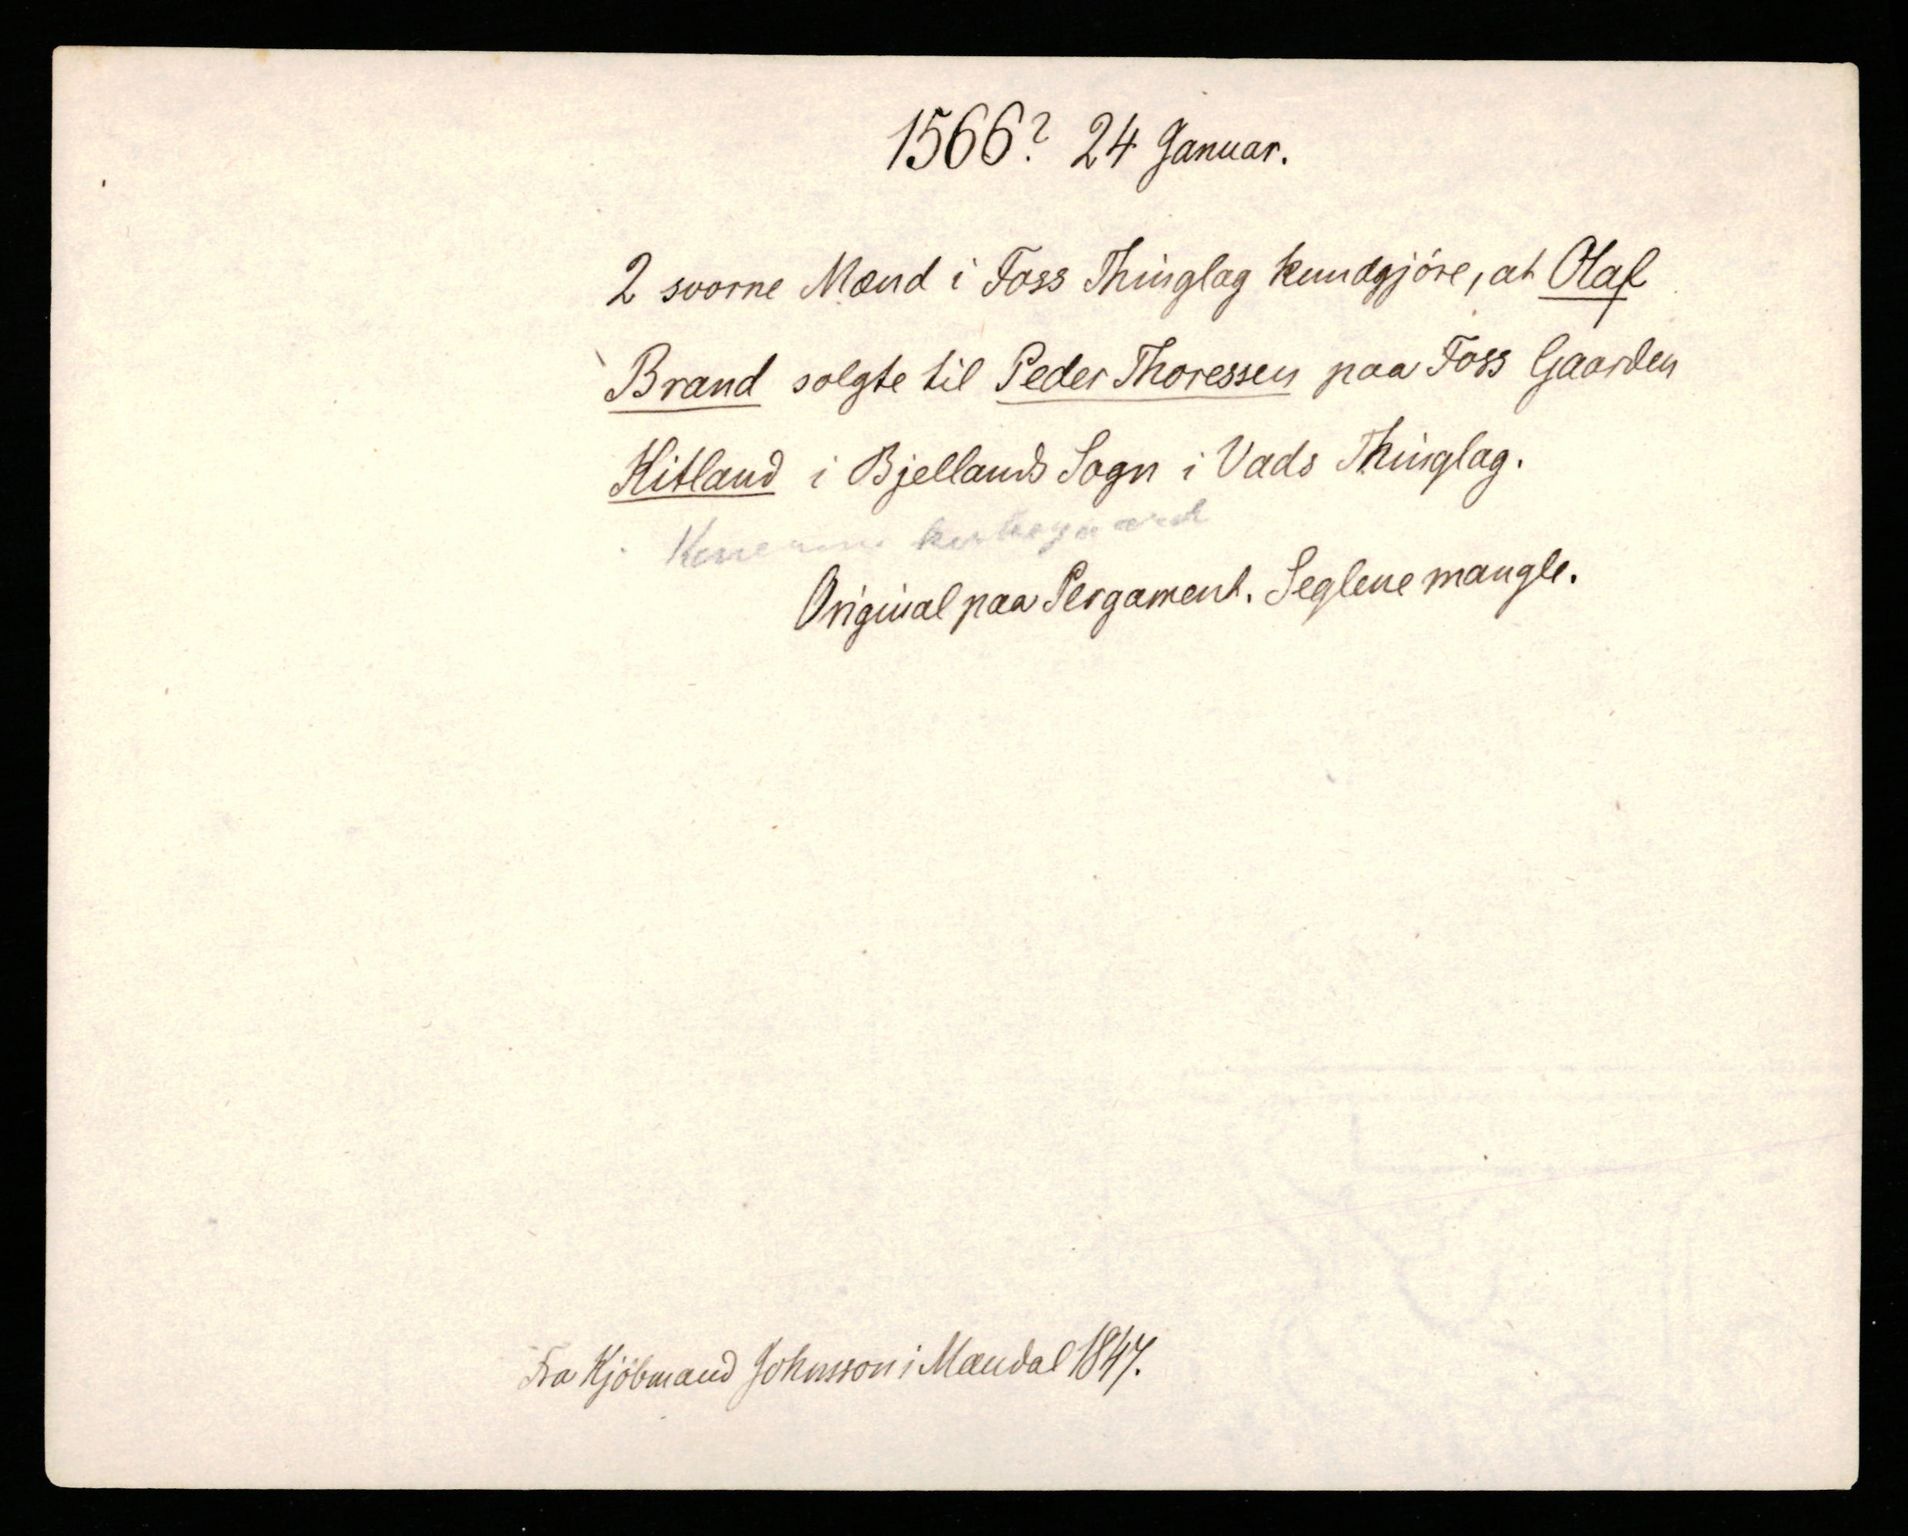 1566? 24 Januar.
2 svorne Mænd i Foss Thinglag kundgjöre, at Olaf
Brand solgte til Peder Thoressen paa Foss Gaarden
Hitland i Bjellands Sogn i Vads Thinglag.
Original paa Pergament. Seglene mangle.
Fra Kjöbmand Johnsson i Mandal 1847.